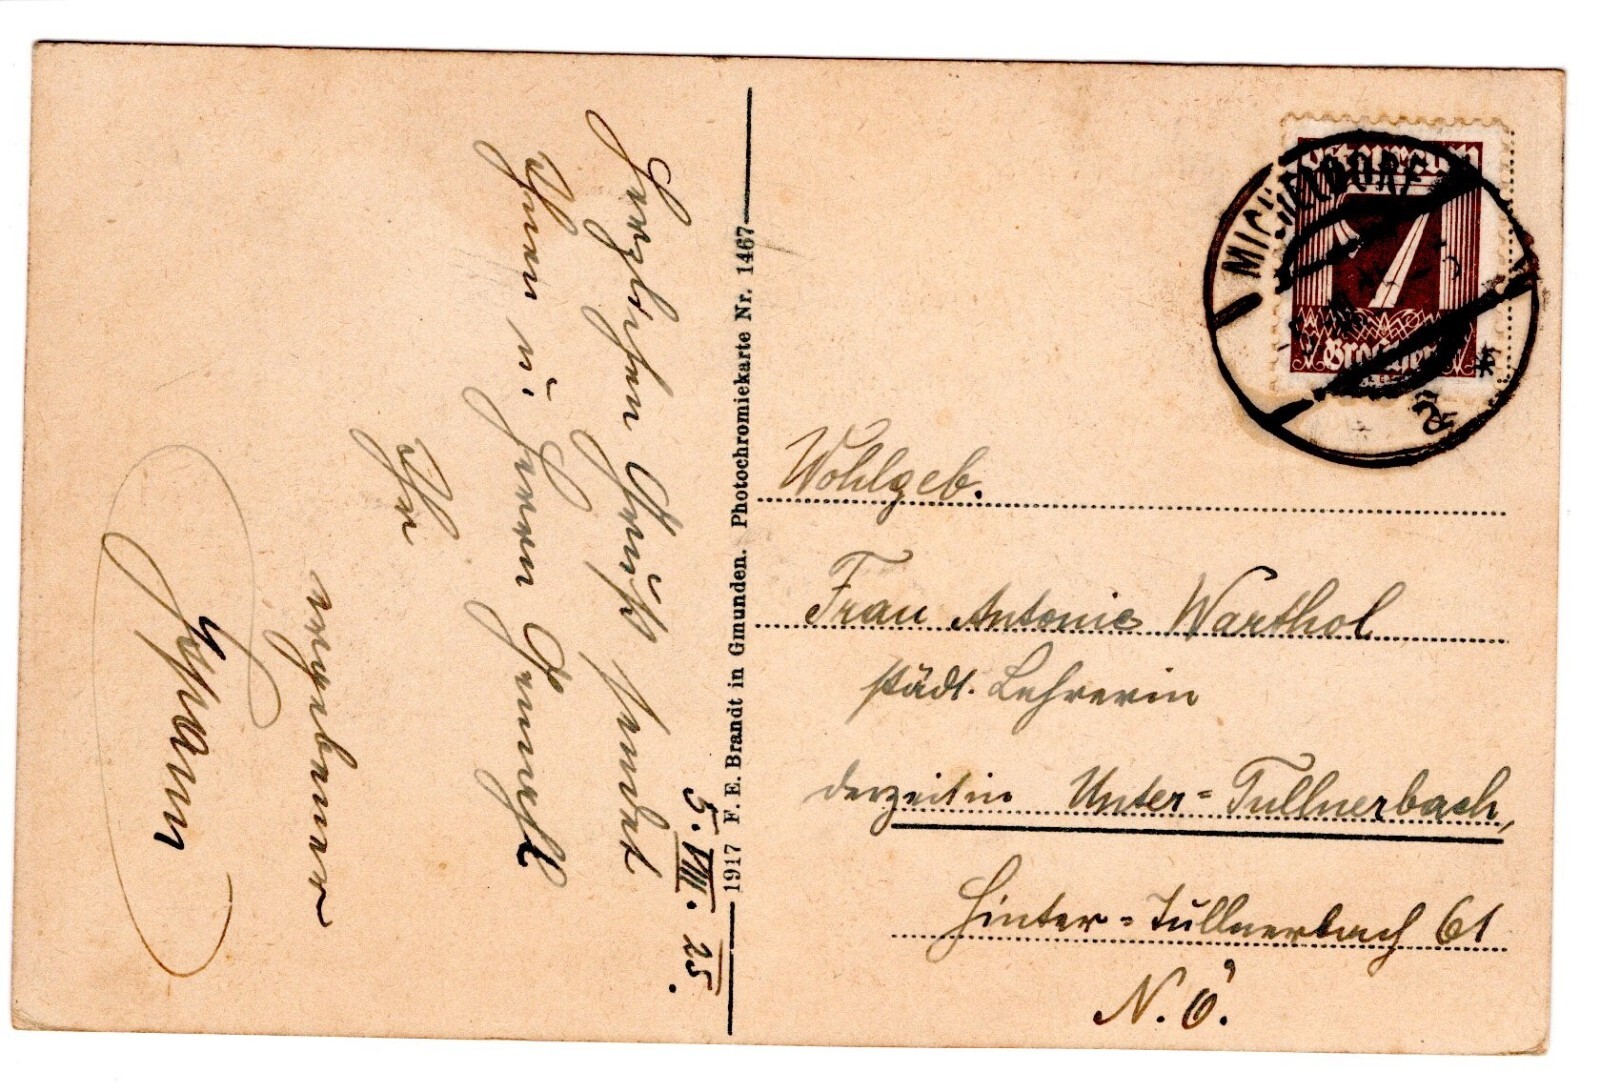 5. VIII. 25.
Herzlichen Gruß sendet
Ihnen u. Herrn Gemahl
Ihr
ergebener
1917 F. E. Brandt in Gmunden. Photochromiekarte Nr. 1467
Österreich
7
Groschen
MICHELDORF
Wohlgeb.
Frau Antonie Warthol
städt. Lehrerin
derzeit in Unter-Tullnerbach,
Hinter-Tullnerbach 61
N. Ö.